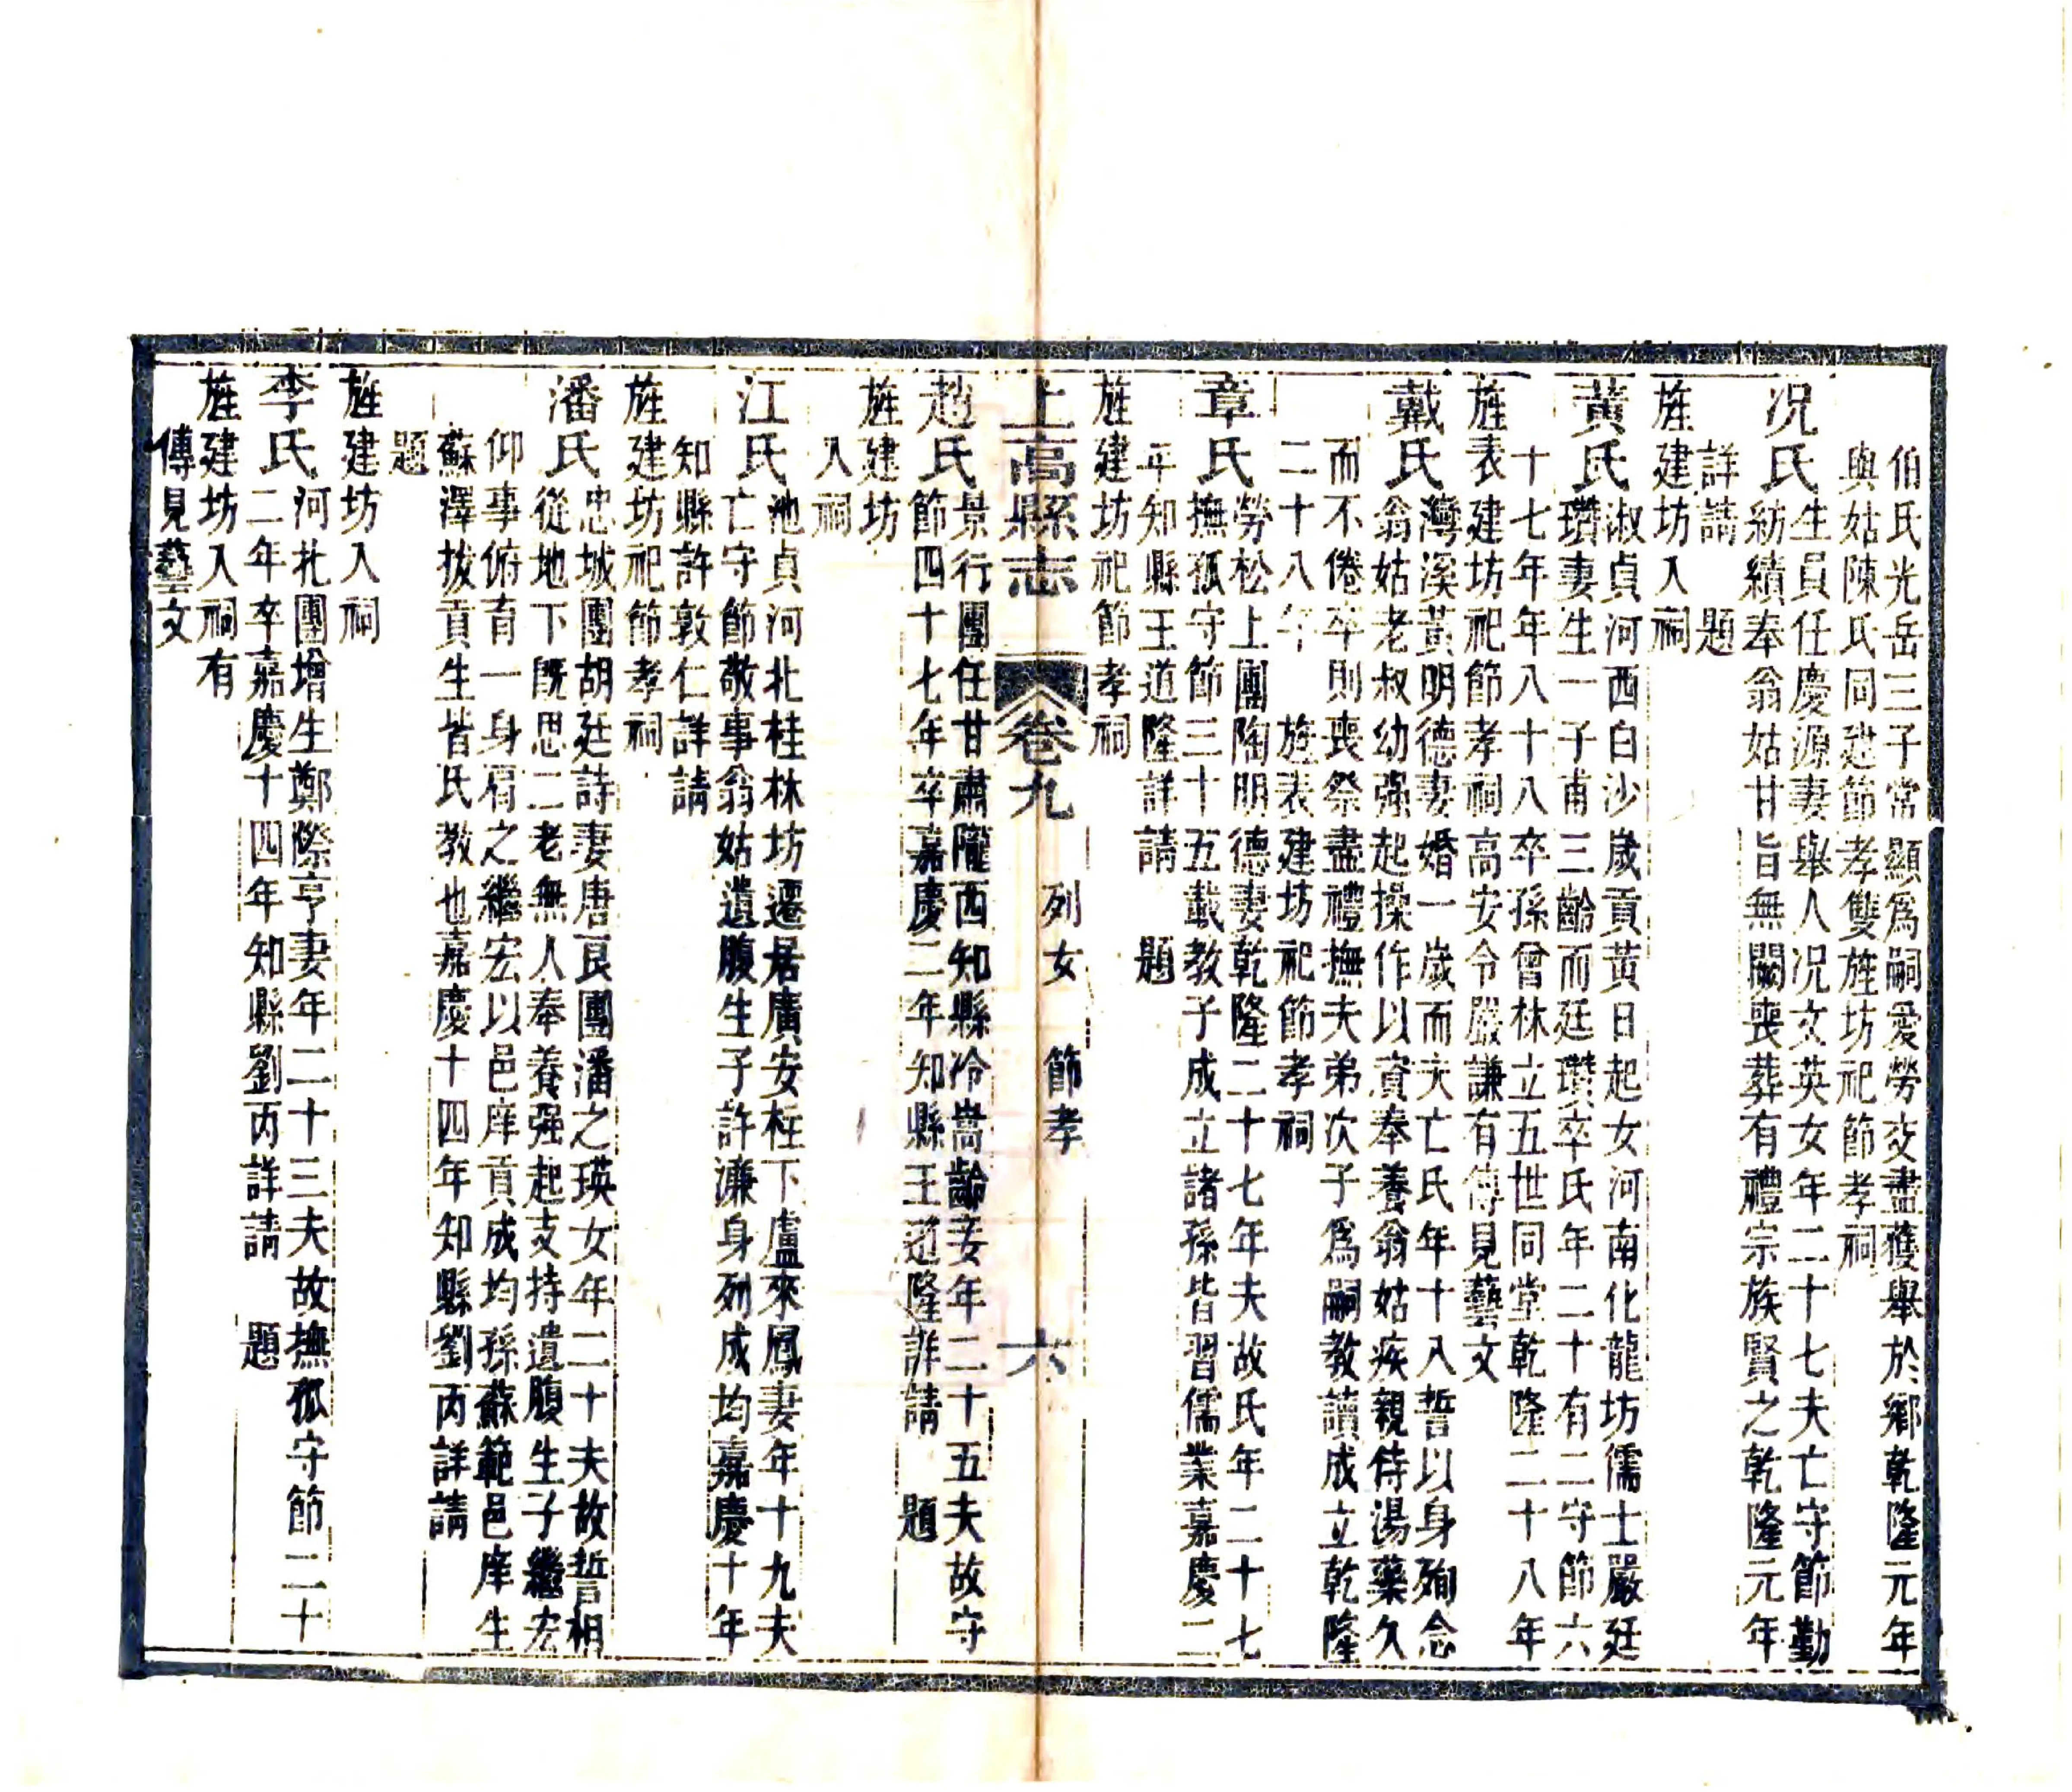 伯氏光岳三子常顯爲嗣愛勞交盡獲舉於鄉乾隆元年
與姑陳氏同建節孝雙旌坊祀節孝祠
况氏生員任慶源妻舉人况文英女年二十七夫亡守節勤
紡績奉翁姑甘旨無闕喪葬有禮宗族賢之乾隆元年
詳請　題
旌建坊入祠
黃氏淑貞河西白沙歲貢黃日起女河南化龍坊儒士嚴廷
瓚妻生一子甫三齡而廷瓚卒氏年二十有二守節六
十七年年八十八卒孫曾林立五世同堂乾隆二十八年
旌表建坊祀節孝祠高安令嚴謙有傳見藝文
戴氏灣溪黃明德妻婚一歲而夫亡氏年十八誓以身殉念
翁姑老叔幼强起操作以資奉養翁姑疾親侍湯藥久
而不倦卒則喪祭盡禮撫夫弟次子爲嗣教讀成立乾隆
二十八年　旌表建坊祀節孝祠
章氏勞松上團陶明德妻乾隆二十七年夫故氏年二十七
撫孤守節三十五載教子成立諸孫皆習儒業嘉慶二
年知縣王道隆詳請　題
旌建坊祀節孝祠
上高縣志　卷九　列女　節孝　六
趙氏景行團任甘肅隴西知縣冷嵩齡妾年二十五夫故守
節四十七年卒嘉慶二年知縣王道隆詳請　題
旌建坊
入祠
江氏池貞河北桂林坊遷居廣安柱下盧來鳳妻年十九夫
亡守節敬事翁姑遺腹生子許濂身列成均嘉慶十年
知縣許敦仁詳請
旌建坊祀節孝祠
潘氏忠城團胡廷詩妻唐良團潘之瑛女年二十夫故誓相
從地下旣思二老無人奉養强起支持遺腹生子繼宏
仰事俯育一身肩之繼宏以邑庠貢成均孫蘇範邑庠生
蘇澤拔貢生皆氏教也嘉慶十四年知縣劉丙詳請
題
旌建坊入祠
李氏河北團增生鄭際亨妻年二十三夫故撫孤守節二十
二年卒嘉慶十四年知縣劉丙詳請　題
旌建坊入祠有
傳見藝文